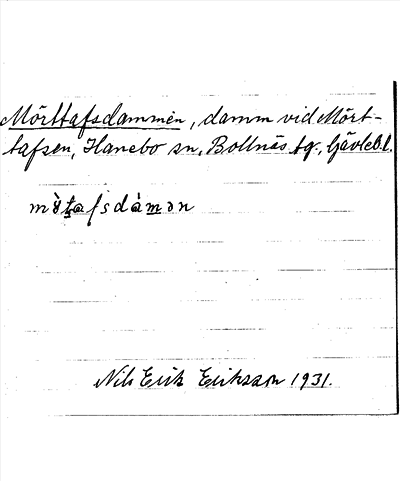 Mörttafsdammen, damm vid Mört-
tafsen, Hanebo sn, Bollnäs tg., Gävleb.l.
mö̀tafsdàmən
Nils Erik Eriksson 1931.